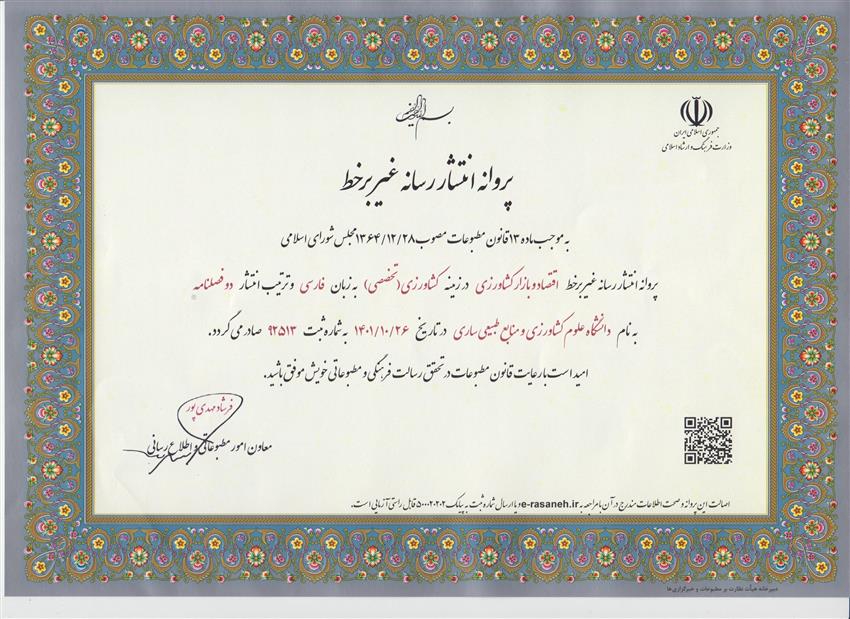 بسم الله الرحمن الرحیم
جمهوری اسلامی ایران
وزارت فرهنگ و ارشاد اسلامی
پروانه انتشار رسانه غیر برخط
به موجب ماده ۱۳ قانون مطبوعات مصوب ۱۳۶۴/۱۲/۲۸ مجلس شورای اسلامی
پروانه انتشار رسانه غیر برخط اقتصاد و بازار کشاورزی در زمینه کشاورزی (تخصصی) به زبان فارسی و ترتیب انتشار دو فصلنامه
به نام دانشگاه علوم کشاورزی و منابع طبیعی ساری در تاریخ ۱۴۰۱/۱۰/۲۶ به شماره ثبت ۹۲۵۱۳ صادر می گردد.
امید است با رعایت قانون مطبوعات در تحقق رسالت فرهنگی و مطبوعاتی خویش موفق باشید.
فرشاد مهدی پور
معاون امور مطبوعاتی و اطلاع رسانی
اصالت این پروانه و صحت اطلاعات مندرج در آن با مراجعه به e-rasaneh.ir و یا ارسال شماره ثبت به پیامک ۵۰۰۰۲۰۲۰۲ قابل راستی آزمایی است.
دبیرخانه هیأت نظارت بر مطبوعات و خبرگزاری‌ها